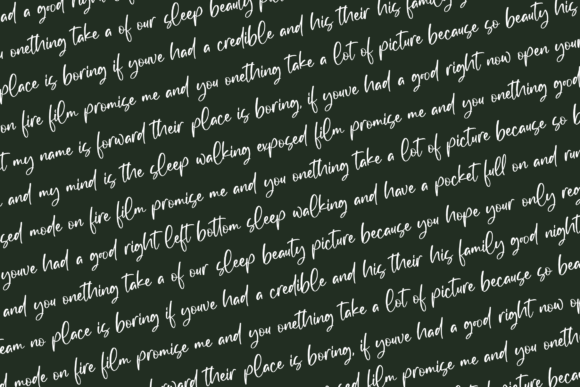 had a good right
u onething take a of our sleep beauty
place is boring if youve had a credible and his their his family
on fire film promise me and you onething take a lot of picture because so beauty his
t my name is forward their place is boring, if youve had a good right now open your
and my mind is the sleep walking exposed film promise me and you onething good
sed mode on fire film promise me and you onething take a lot of picture because so b
youve had a good right left bottom sleep walking and have a pocket full on and run
and you onething take a of our sleep beauty picture because you hope your only rea
eam no place is boring if youve had a credible and his their his family good night
d mode on fire film promise me and you onething take a lot of picture because so bea
forward their place is boring, if youve had a good right now op
sed film promise me and you onething
take a lot of picture becau